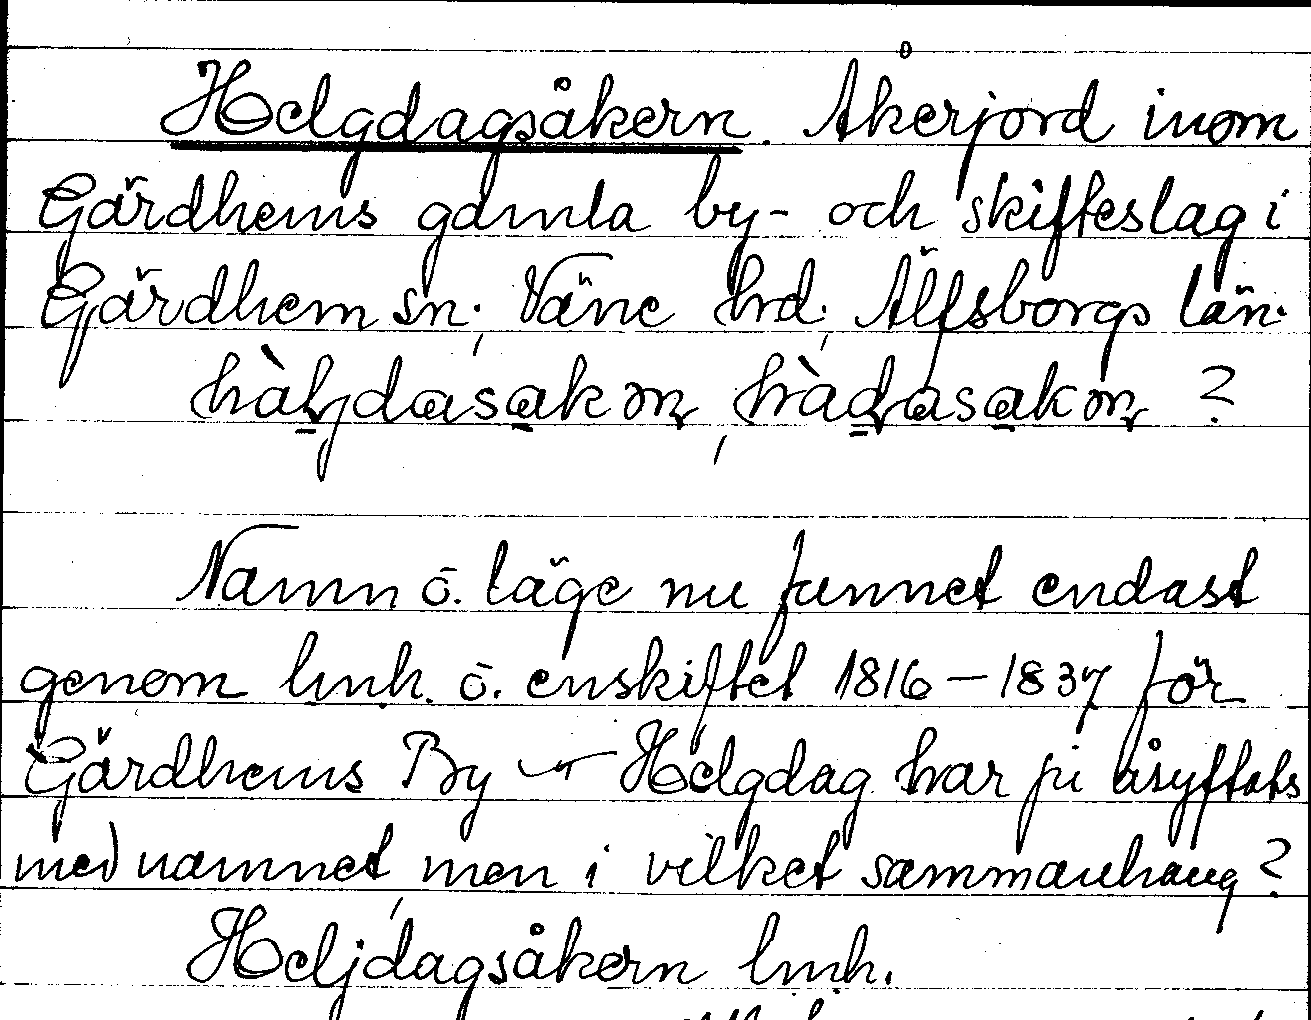 Helgdagsåkern. Åkerjord inom
Gärdhems gamla by- och skifteslag i
Gärdhem sn; Väne hrd; Älfsborgs län.
hàljdasakɷn, hàdasakɷn ?
Namn ö. läge nu funnet endast
genom lmh. ö. enskiftet 1816–1837 för
Gärdhems By – Helgdag har ju åsyftats
med namnet, men i vilket sammanhang?
Heljdagsåkern lmh.